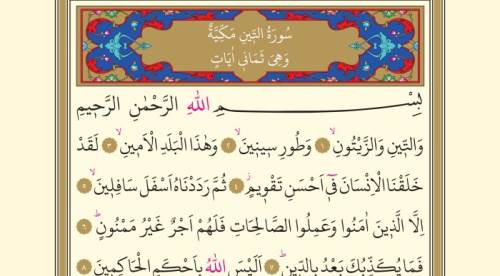 سُورَةُ التّ۪ينِ مَكِّيَّةٌ
وَهِيَ ثَمَانِي اٰيَاتٍ
بِسْمِ اللّٰهِ الرَّحْمٰنِ الرَّح۪يمِ
وَالتّ۪ينِ وَالزَّيْتُونِۙ ﴿١﴾ وَطُورِ س۪ين۪ينَۙ ﴿٢﴾ وَهٰذَا الْبَلَدِ الْاَم۪ينِۙ ﴿٣﴾ لَقَدْ
خَلَقْنَا الْاِنْسَانَ ف۪ٓي اَحْسَنِ تَقْو۪يمٍۘ ﴿٤﴾ ثُمَّ رَدَدْنَاهُ اَسْفَلَ سَافِل۪ينَۙ ﴿٥﴾
اِلَّا الَّذ۪ينَ اٰمَنُوا وَعَمِلُوا الصَّالِحَاتِ فَلَهُمْ اَجْرٌ غَيْرُ مَمْنُونٍۜ ﴿٦﴾
فَمَا يُكَذِّبُكَ بَعْدُ بِالدّ۪ينِۜ ﴿٧﴾ اَلَيْسَ اللّٰهُ بِاَحْكَمِ الْحَاكِم۪ينَ ﴿٨﴾